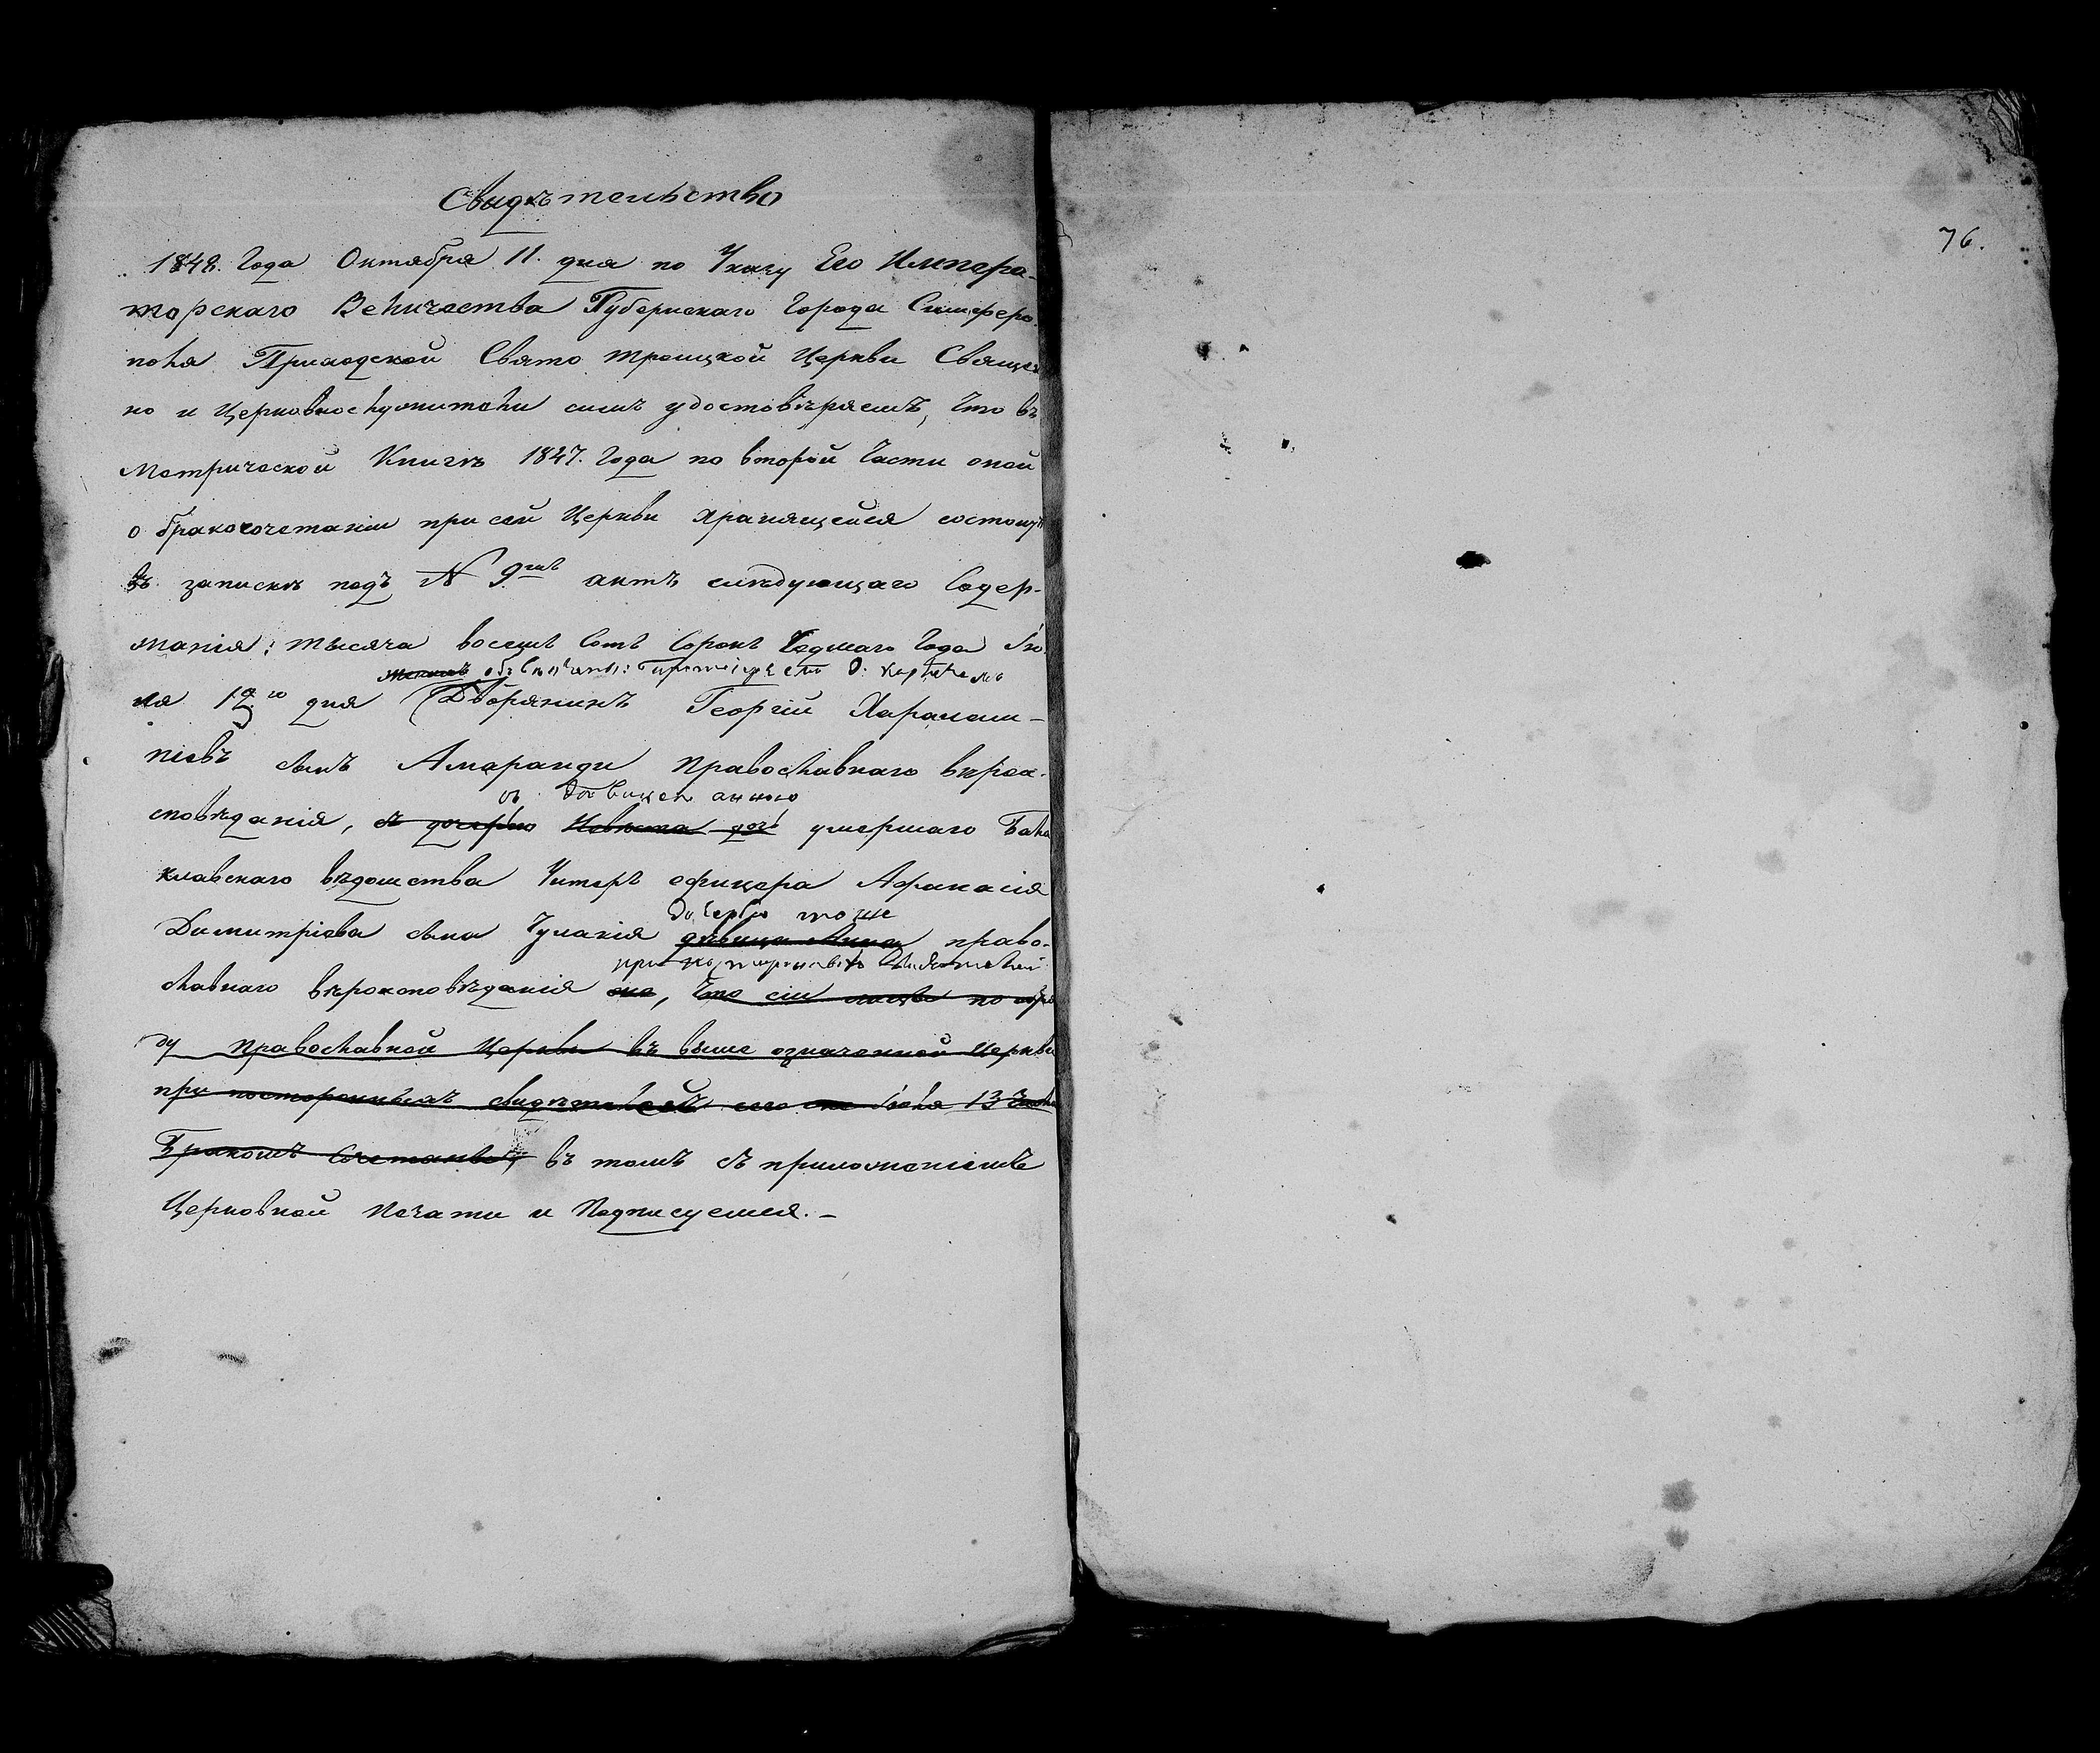 Свидѣтельство
1848. Года Октября 11. дня по Указу Его Импера-
торскаго Величества Губернскаго Города Симферо-
поля Приходской Свято Троицкой Церкви Священ
но и Церковнослужители симъ удостовѣряемъ, Что въ
Метрической Книгѣ 1847. Года по второй Части оной
о бракосочетаніи при сей Церкви хранящейся состоит
въ запискѣ подъ № 9мъ актъ слѣдующаго Содер-
жанія: тысяча восемь Сотъ Сорокъ Седмаго Года Iю
обвѣнчаны: Протоіереемъ
ля 13го дня Дворянинъ Георгій Харалам-
піевъ сынъ Амаранди Православнаго вѣрои-
съ дѣвицею анною
сповѣданія, съ дочерью Невѣста дочь умершаго Бала
клавскаго вѣдомства Унтеръ офицера Афанасія
дочерью тоже
Димитріева сына Чулакія дѣвица Анна право-
при постороннихъ свидѣтелей
славнаго вѣроисповѣданія она, Что сіи лица по обря
ду Православной Церкви въ выше означенной Церкви
при постороннихъ свидѣтелей Iюля 13 Числа
Бракомъ Сочетаны, въ томъ съ приложеніемъ
Церковной Печати и Подписуемся. -
76.